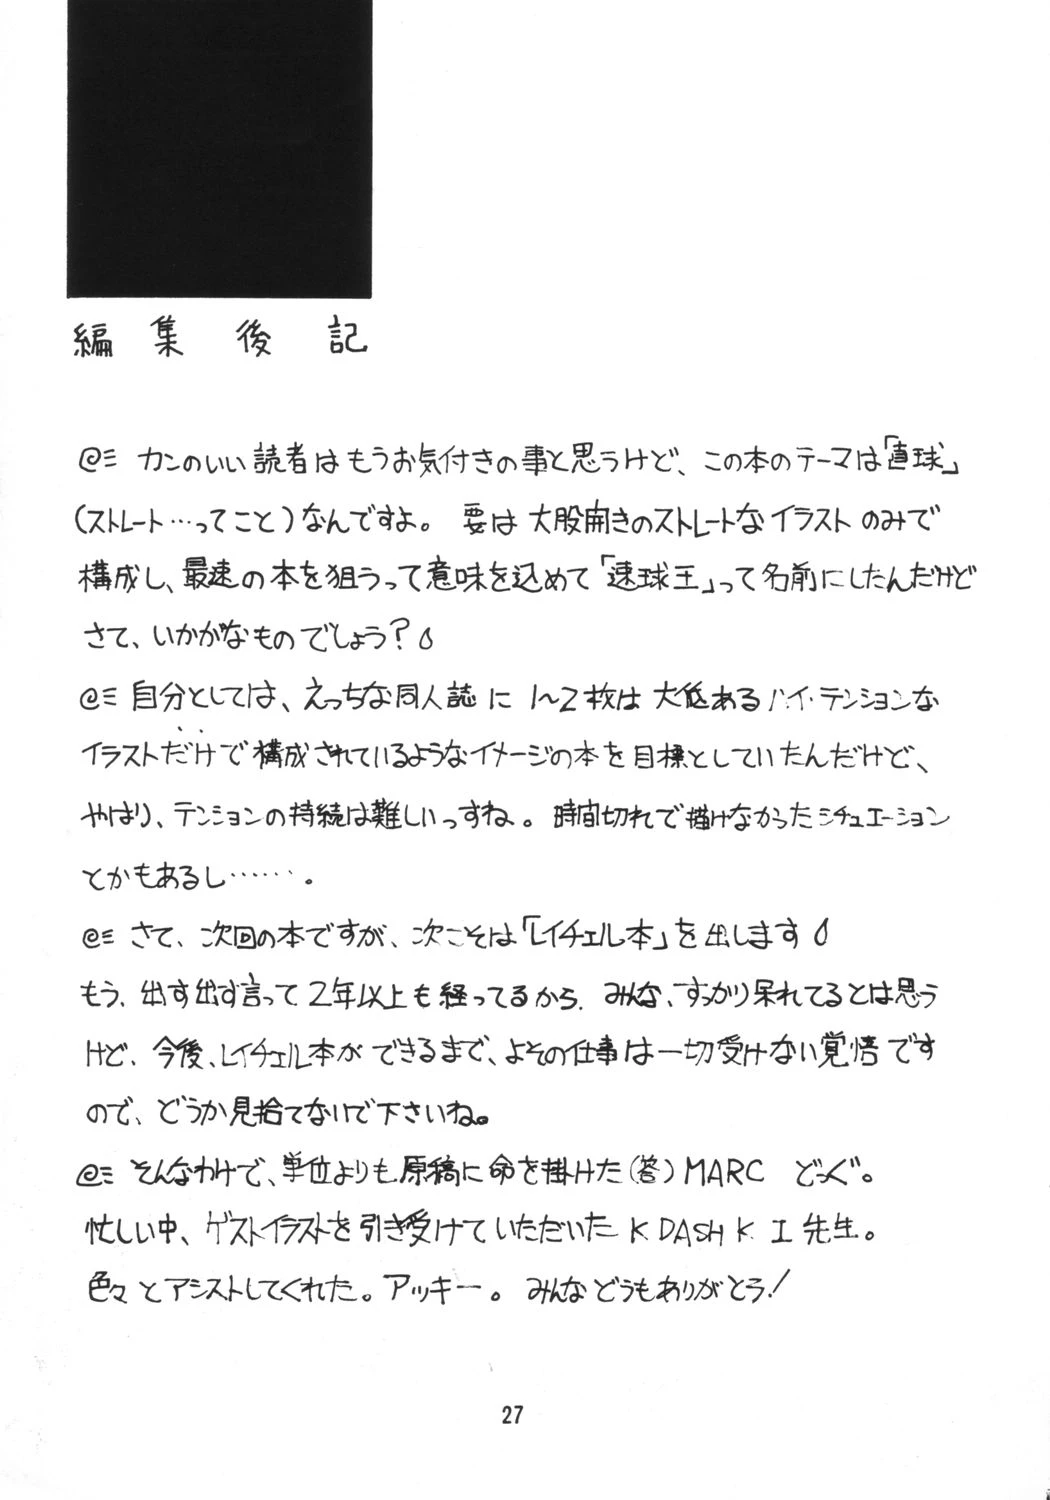 編集後記
@ミ カンのいい読者はもうお気付きの事と思うけど、この本のテーマは「直球」
(ストレート…ってこと)なんですよ。 要は大股開きのストレートなイラストのみで
構成し、最速の本を狙うって意味を込めて「速球王」って名前にしたんだけど
さて、いかがなものでしょう?
@ミ 自分としては、えっちな同人誌に 1〜2枚は大低あるハイ・テンションな
イラストだけで構成されているようなイメージの本を目標としていたんだけど、
やはり、テンションの持続は難しいっすね。 時間切れで描けなかったシチュエーション
とかもあるし……。
@ミ さて、次回の本ですが、次こそは「レイチェル本」を出します
もう、出す出す言って2年以上も経ってるから、みんな、すっかり呆れてるとは思う
けど、今後、レイチェル本ができるまで、よその仕事は一切受けない覚悟です
ので、どうか見捨てないで下さいね。
@ミ そんなわけで、単位よりも原稿に命を掛けた(答)MARC どっぐ。
忙しい中、ゲストイラストを引き受けていただいたK DASH K I 先生。
色々とアシストしてくれた。アッキー。 みんなどうもありがとう!
27